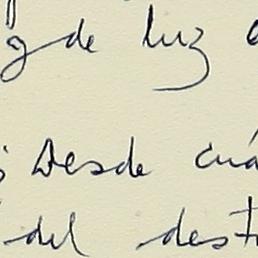 de luz
Desde cuá
del dest